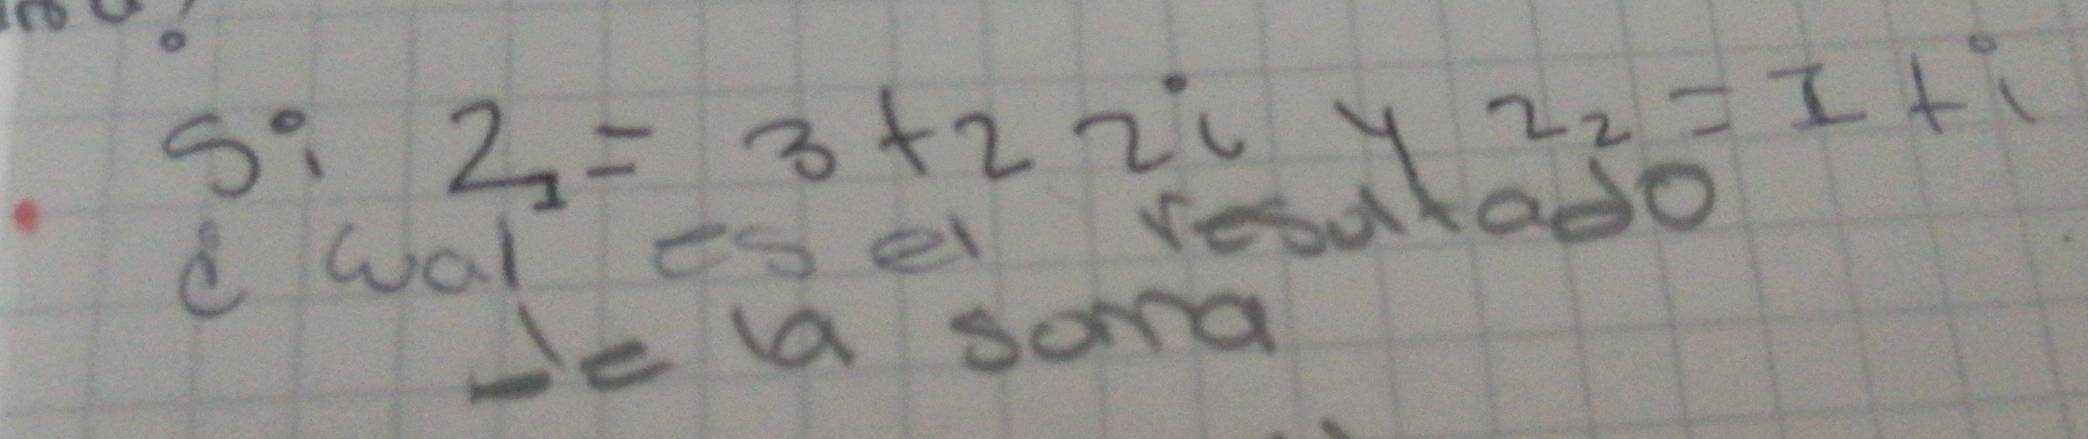 Si Z₁ = 3 + 2 2i y z₂ = 1 + i
¿ cual es el resultado
de la soma